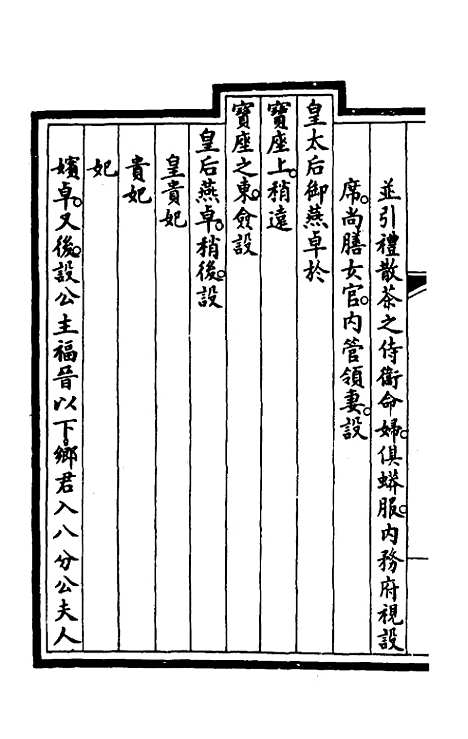 並引禮散茶之侍衛命婦。俱蟒服。內務府視設
席。尚膳女官。內管領妻。設
皇太后御燕卓於
寶座上。稍遠
寶座之東。僉設
皇后燕卓。稍後。設
皇貴妃
貴妃
妃
嬪卓。又後。設公主福晉以下。鄉君入八分公夫人